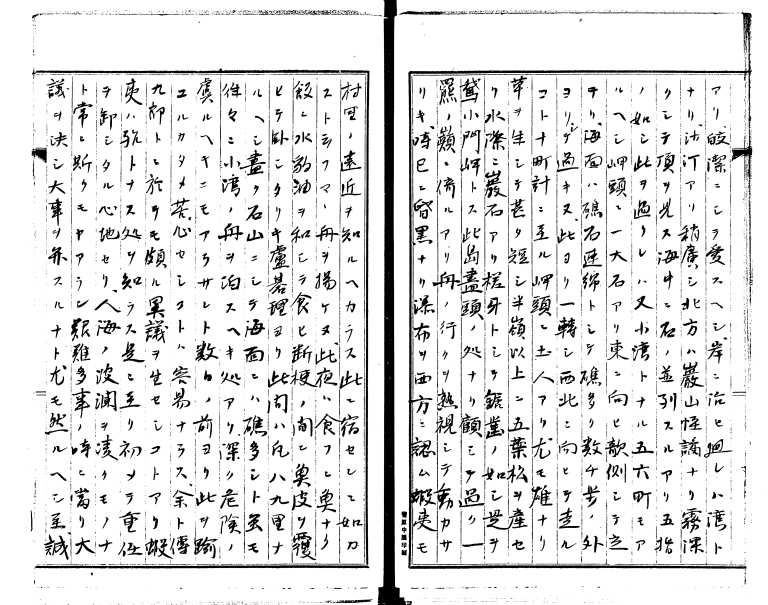 アリ皎潔ニシテ愛スヘシ岸ニ沿ヒ廻レハ湾ト
ナリ汀アリ稍廣シ北方ハ巖山怪譎ナリ霧深
クシテ頂ヲ見ス海中ニ石ノ並列スルアリ五指
ノ如シ此ヲ過クレハ又小湾トナル五六町モア
ルヘシ岬頭ニ一大石アリ東ニ向ヒ歌側シテ立
テリ海面ハ礁石連綿トシテ礁多ク数千歩ノ外
ヨリシテ過キヌ此ヨリ一轉シ西北ニ向ヒテ走ル
コト十町計ニ至ル岬頭ニ土人アリ尤モ雄ナリ
草ヲ生シテ甚タ短シ半嶺以上ニ五葉松ヲ産セ
リ水際ニ巖石アリ槎牙トシテ鋸歯ノ如シ是ヲ
鷲小門岬トス此島盡頭ノ処ナリ顧ミテ過ク一
羆ノ巓ニ倚ルアリ舟ノ行クヲ熟視シテ動カサ
リキ時已ニ昏黒ナリ瀑布ヲ西方ニ認ム蝦夷モ
村里ノ遠近ヲ知ルヘカラス此ニ宿セシニ如カ
ストシフマノ舟ヲ揚ケヌ此夜ハ食フニ魚ナリ
飯ニ水豹油ヲ和シテ食ヒ断梗ノ間ニ魚皮ヲ覆
ヒテ臥シタリキ盧碁理ヨリ此間ハ凡八九里ナ
ルヘシ盡ク石山ニシテ海面ニハ礁多シト虽モ
往々ニ小湾ノ舟ヲ泊スヘキ処アリ深ク危険ノ
虞ルヘキニモアラサレト数日ノ前ヨリ此ヲ踰
エルカタメ苦心セシコトハ容易ナラス余ト傳
九郎トニ於テモ頗ル異議ヲ生セシコトアリ蝦
夷ハ孰トナス処ヲ知ラス是ニ至リ初メテ重任
ヲ卸シタル心地セリ人海ノ波瀾ヲ凌クモノナ
ト常ニ斯クモヤアラン艱難多事ノ時ニ當リ大
議ヲ決シ大事ヲ弁スルナト尤モ然ルヘシ至誠